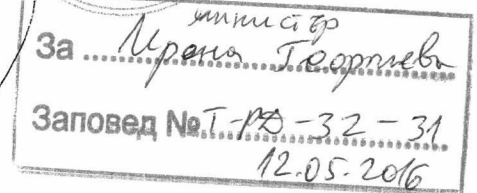 министър
За ..... Ирена Георгиева
Заповед № Т-РД-32-31
12.05.2016